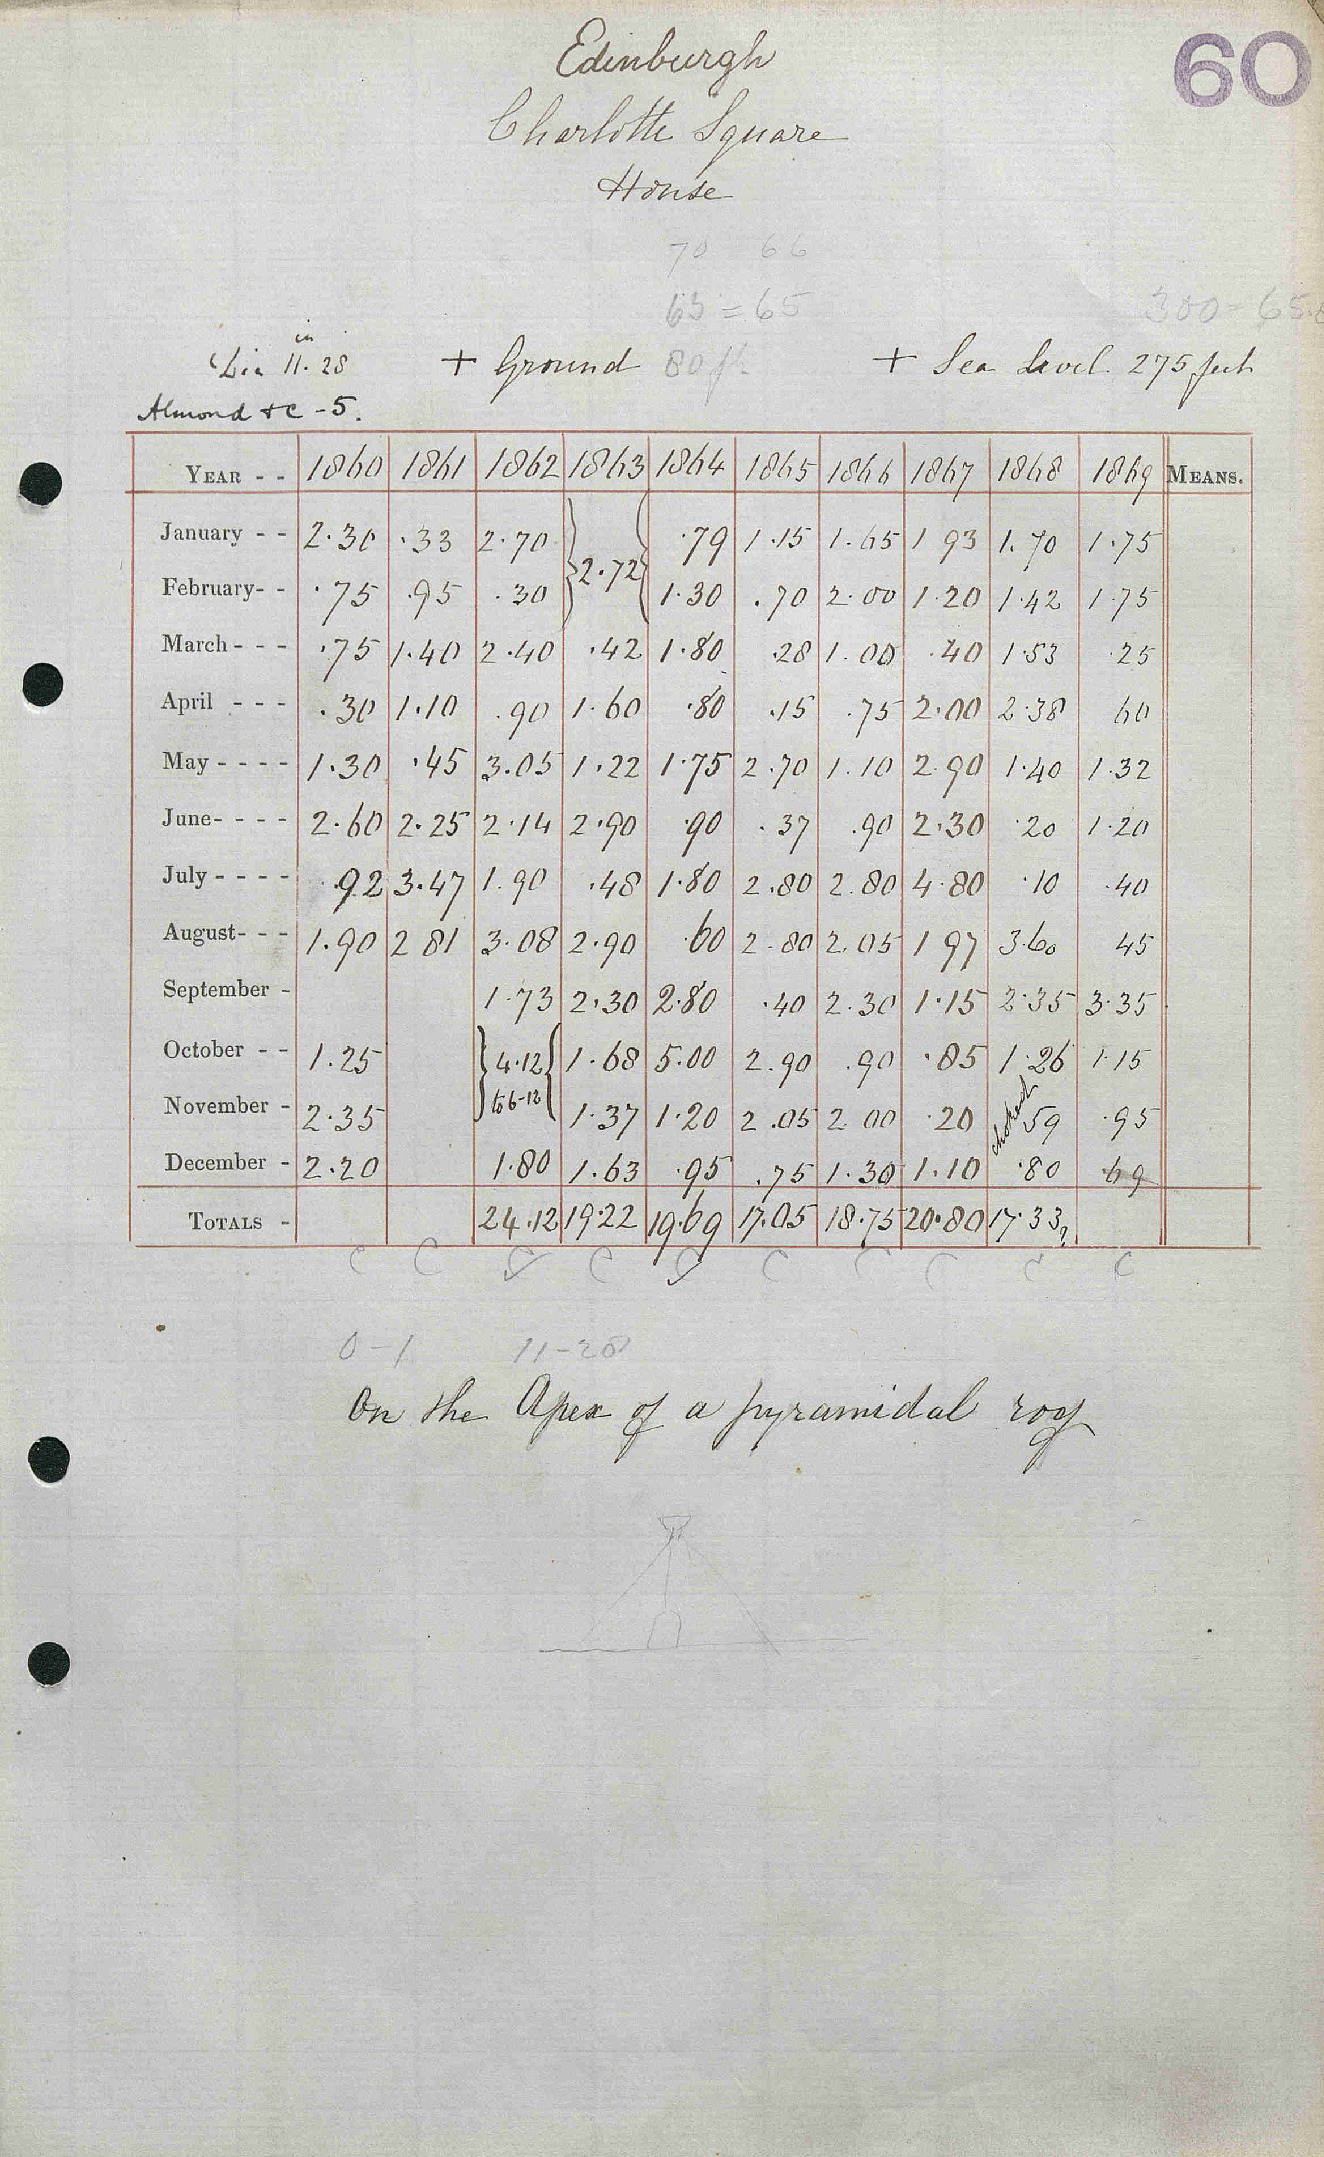 60
Edinburgh
Charlotte Square
House
70 66
65 = 65
300 = 65.
in
Dia 11.28 + Ground 80 ft + Sea Level 275 feet
Almond &c - 5.
YEAR - - 1860 1861 1862 1863 1864 1865 1866 1867 1868 1869 MEANS.
January - - 2.30 .33 2.70 } 2.72 { .79 1.15 1.65 1 93 1.70 1.75
February- - .75 .95 .30 1.30 .70 2.00 1.20 1.42 1.75
March - - - .75 1.40 2.40 .42 1.80 .28 1.00 .40 1.53 .25
April - - - .30 1.10 .90 1.60 .80 .15 .75 2.00 2.38 60
May - - - - 1.30 .45 3.05 1.22 1.75 2.70 1.10 2.90 1.40 1.32
June- - - - 2.60 2.25 2.14 2.90 .90 .37 .90 2.30 .20 1.20
July - - - - .92 3.47 1.90 .48 1.80 2.80 2.80 4.80 .10 .40
August- - - 1.90 2 81 3.08 2.90 .60 2.80 2.05 1 97 3.60 45
September - 1.73 2.30 2.80 .40 2.30 1.15 2.35 3.35
October - - 1.25 } 4.12 { 1.68 5.00 2.90 .90 .85 1.26 1.15
to 6-12
November - 2.35 1.37 1.20 2.05 2 00 .20 .59 .95
December - 2.20 1.80 1.63 .95 .75 1.30 1.10 .80 .69
TOTALS - 24.12 19.22 19.69 17.05 18.75 20.80 17.33?
C C S C S C C C C C
0-1 11-28
On the Apex of a pyramidal roof